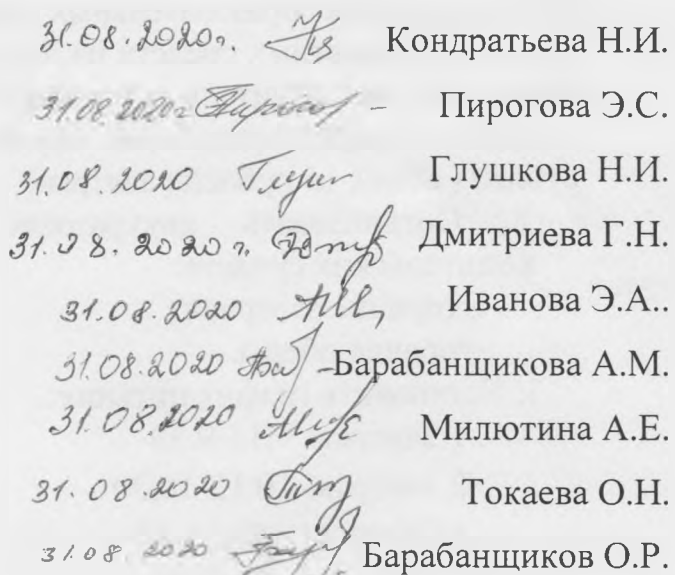 31.08.2020г. Кондратьева Н.И.
31.08.2020г - Пирогова Э.С.
31.08.2020 Глушкова Н.И.
31.08.2020 г. Дмитриева Г.Н.
31.08.2020 Иванова Э.А..
31.08.2020 -Барабанщикова А.М.
31.08.2020 Милютина А.Е.
31.08.2020 Токаева О.Н.
31.08 2020 Барабанщиков О.Р.